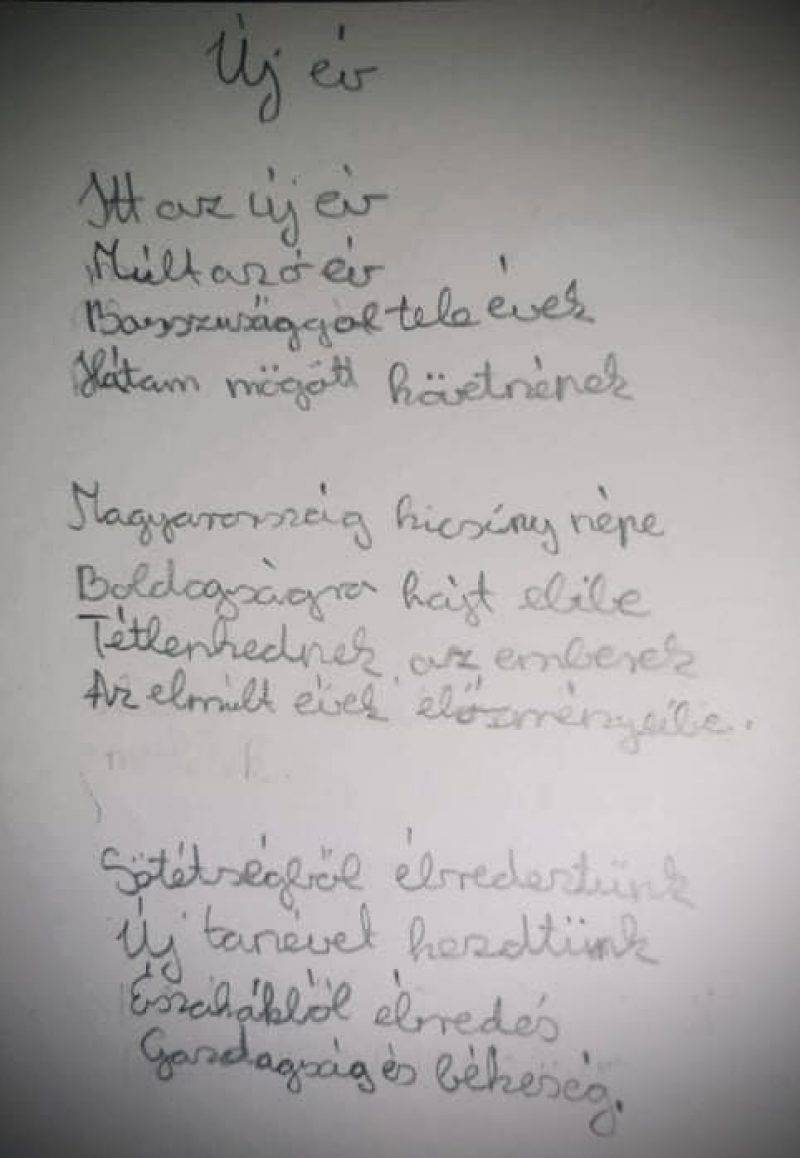 Új év
Itt az új év
Múlt az ó év
Bosszúsággal tele évek
Hátam mögött követnének
Magyarország kicsiny népe
Boldogságra hajt elibe
Tétlenkednek az emberek
Az elmúlt évek előzményeibe.
Sötétségből ébredeztünk
Új tanévet kezdtünk
Éjszakákból ébredés
Gazdagság és békeség.